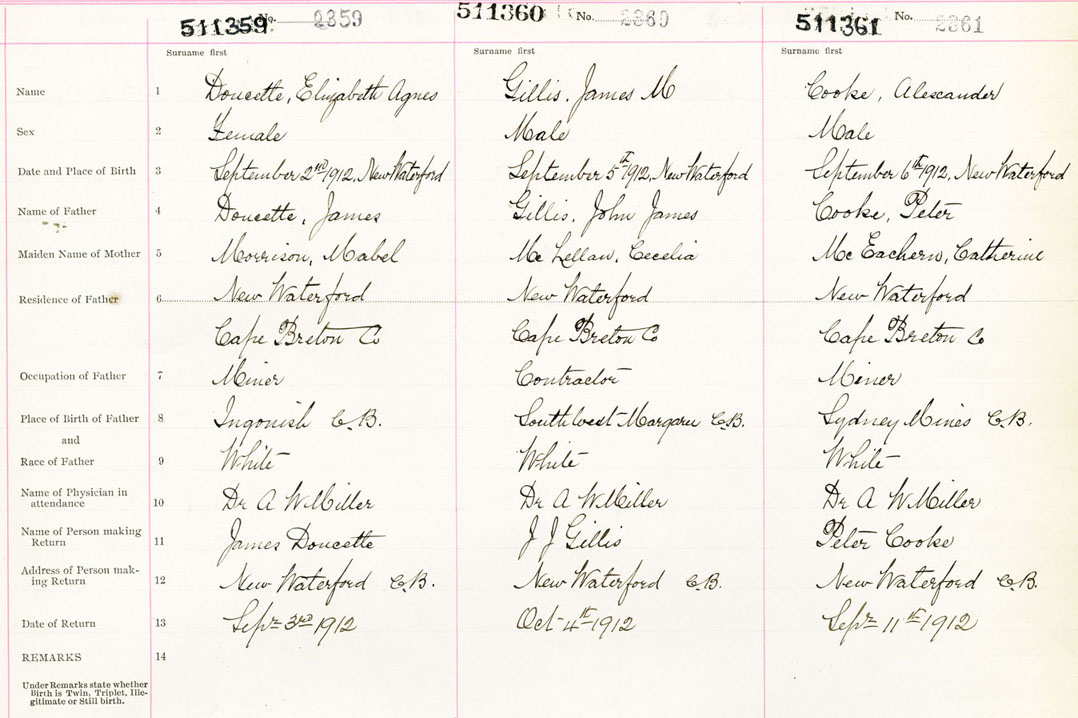 511359 No. 2359 511360 No. 2360 511361 No. 2361
Surname first Surname first Surname first
Name 1 Doucette, Elizabeth Agnes Gillis, James M Cooke, Alexander
Sex 2 Female Male Male
Date and Place of Birth 3 September 2nd 1912, New Waterford September 5th 1912, New Waterford September 6th 1912, New Waterford
Name of Father 4 Doucette, James Gillis, John James Cooke, Peter
Maiden Name of Mother 5 Morrison, Mabel Mc Lellan, Cecelia Mc Eachern, Catherine
Residence of Father 6 New Waterford New Waterford New Waterford
Cape Breton Co Cape Breton Co Cape Breton Co
Occupation of Father 7 Miner Contractor Miner
Place of Birth of Father 8 Ingonish C.B. Southwest Margaree C.B. Sydney Mines C.B.
and
Race of Father 9 White White White
Name of Physician in
attendance 10 Dr A W Miller Dr A W Miller Dr A W Miller
Name of Person making
Return 11 James Doucette J J Gillis Peter Cooke
Address of Person mak-
ing Return 12 New Waterford C.B. New Waterford C.B. New Waterford C.B.
Date of Return 13 Sept 3rd 1912 Oct 4th 1912 Sept 11th 1912
REMARKS 14
Under Remarks state whether
Birth is Twin, Triplet, Ille-
gitimate or Still birth.